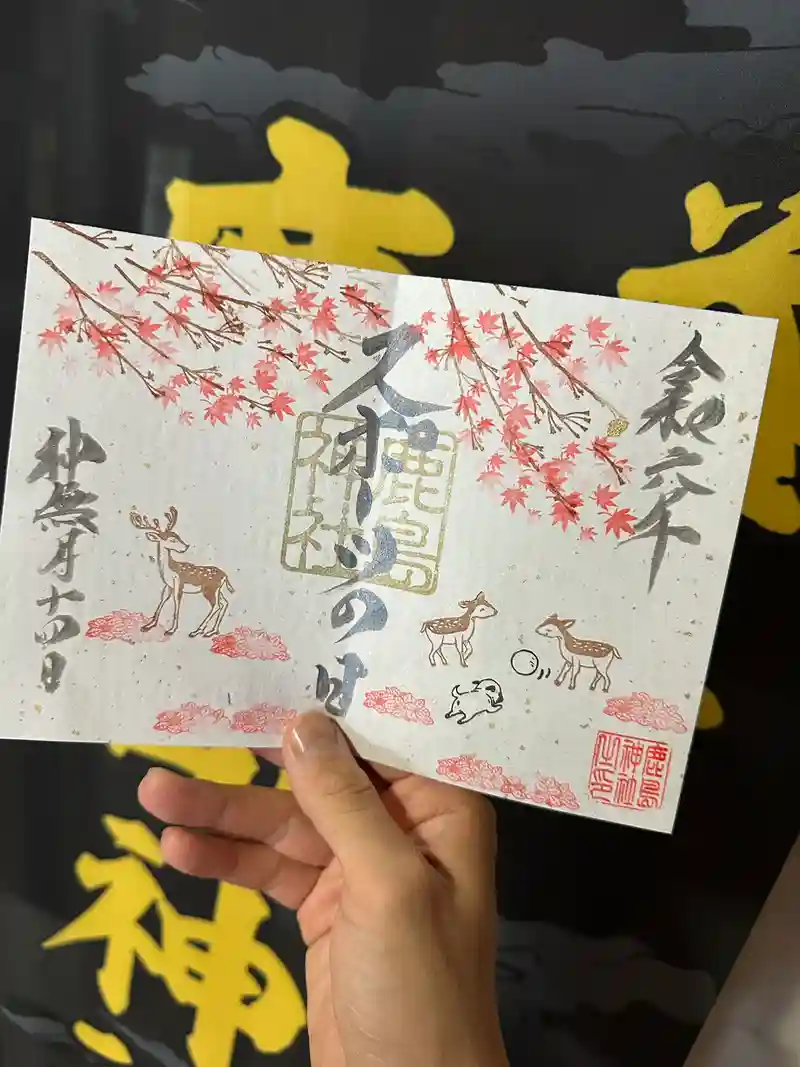 令和六年
スポーツの日
鹿島
神社
神無月十四日
鹿島
神社
神